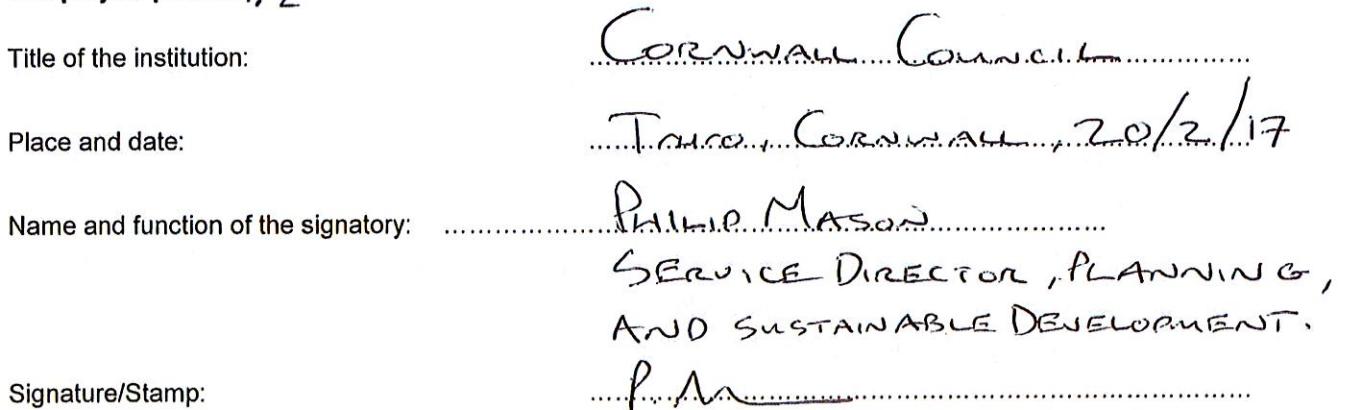 Title of the institution: CORNWALL COUNCIL
Place and date: TRURO, CORNWALL, 20/2/17
Name and function of the signatory: PHILIP MASON
SERVICE DIRECTOR, PLANNING,
AND SUSTAINABLE DEVELOPMENT.
Signature/Stamp: P. M